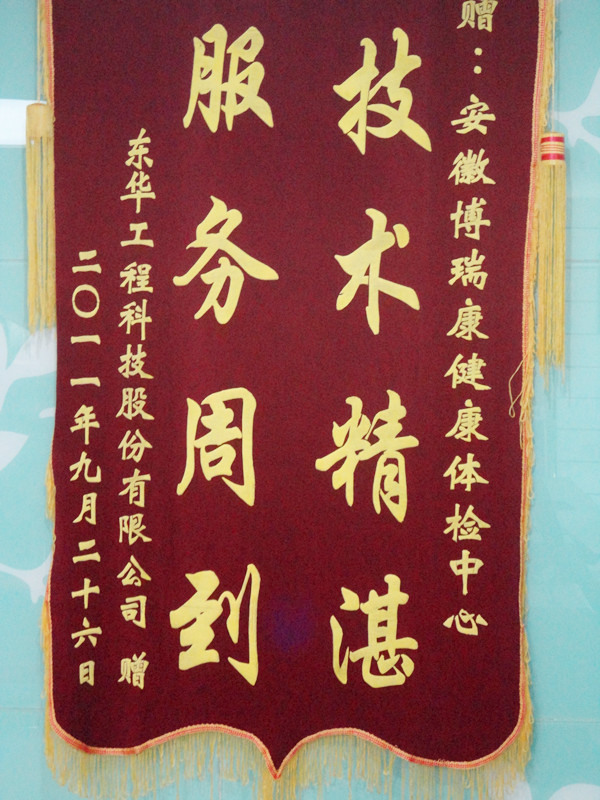 赠：安徽博瑞康健康体检中心
技术精湛
服务周到
东华工程科技股份有限公司 赠
二〇一一年九月二十六日